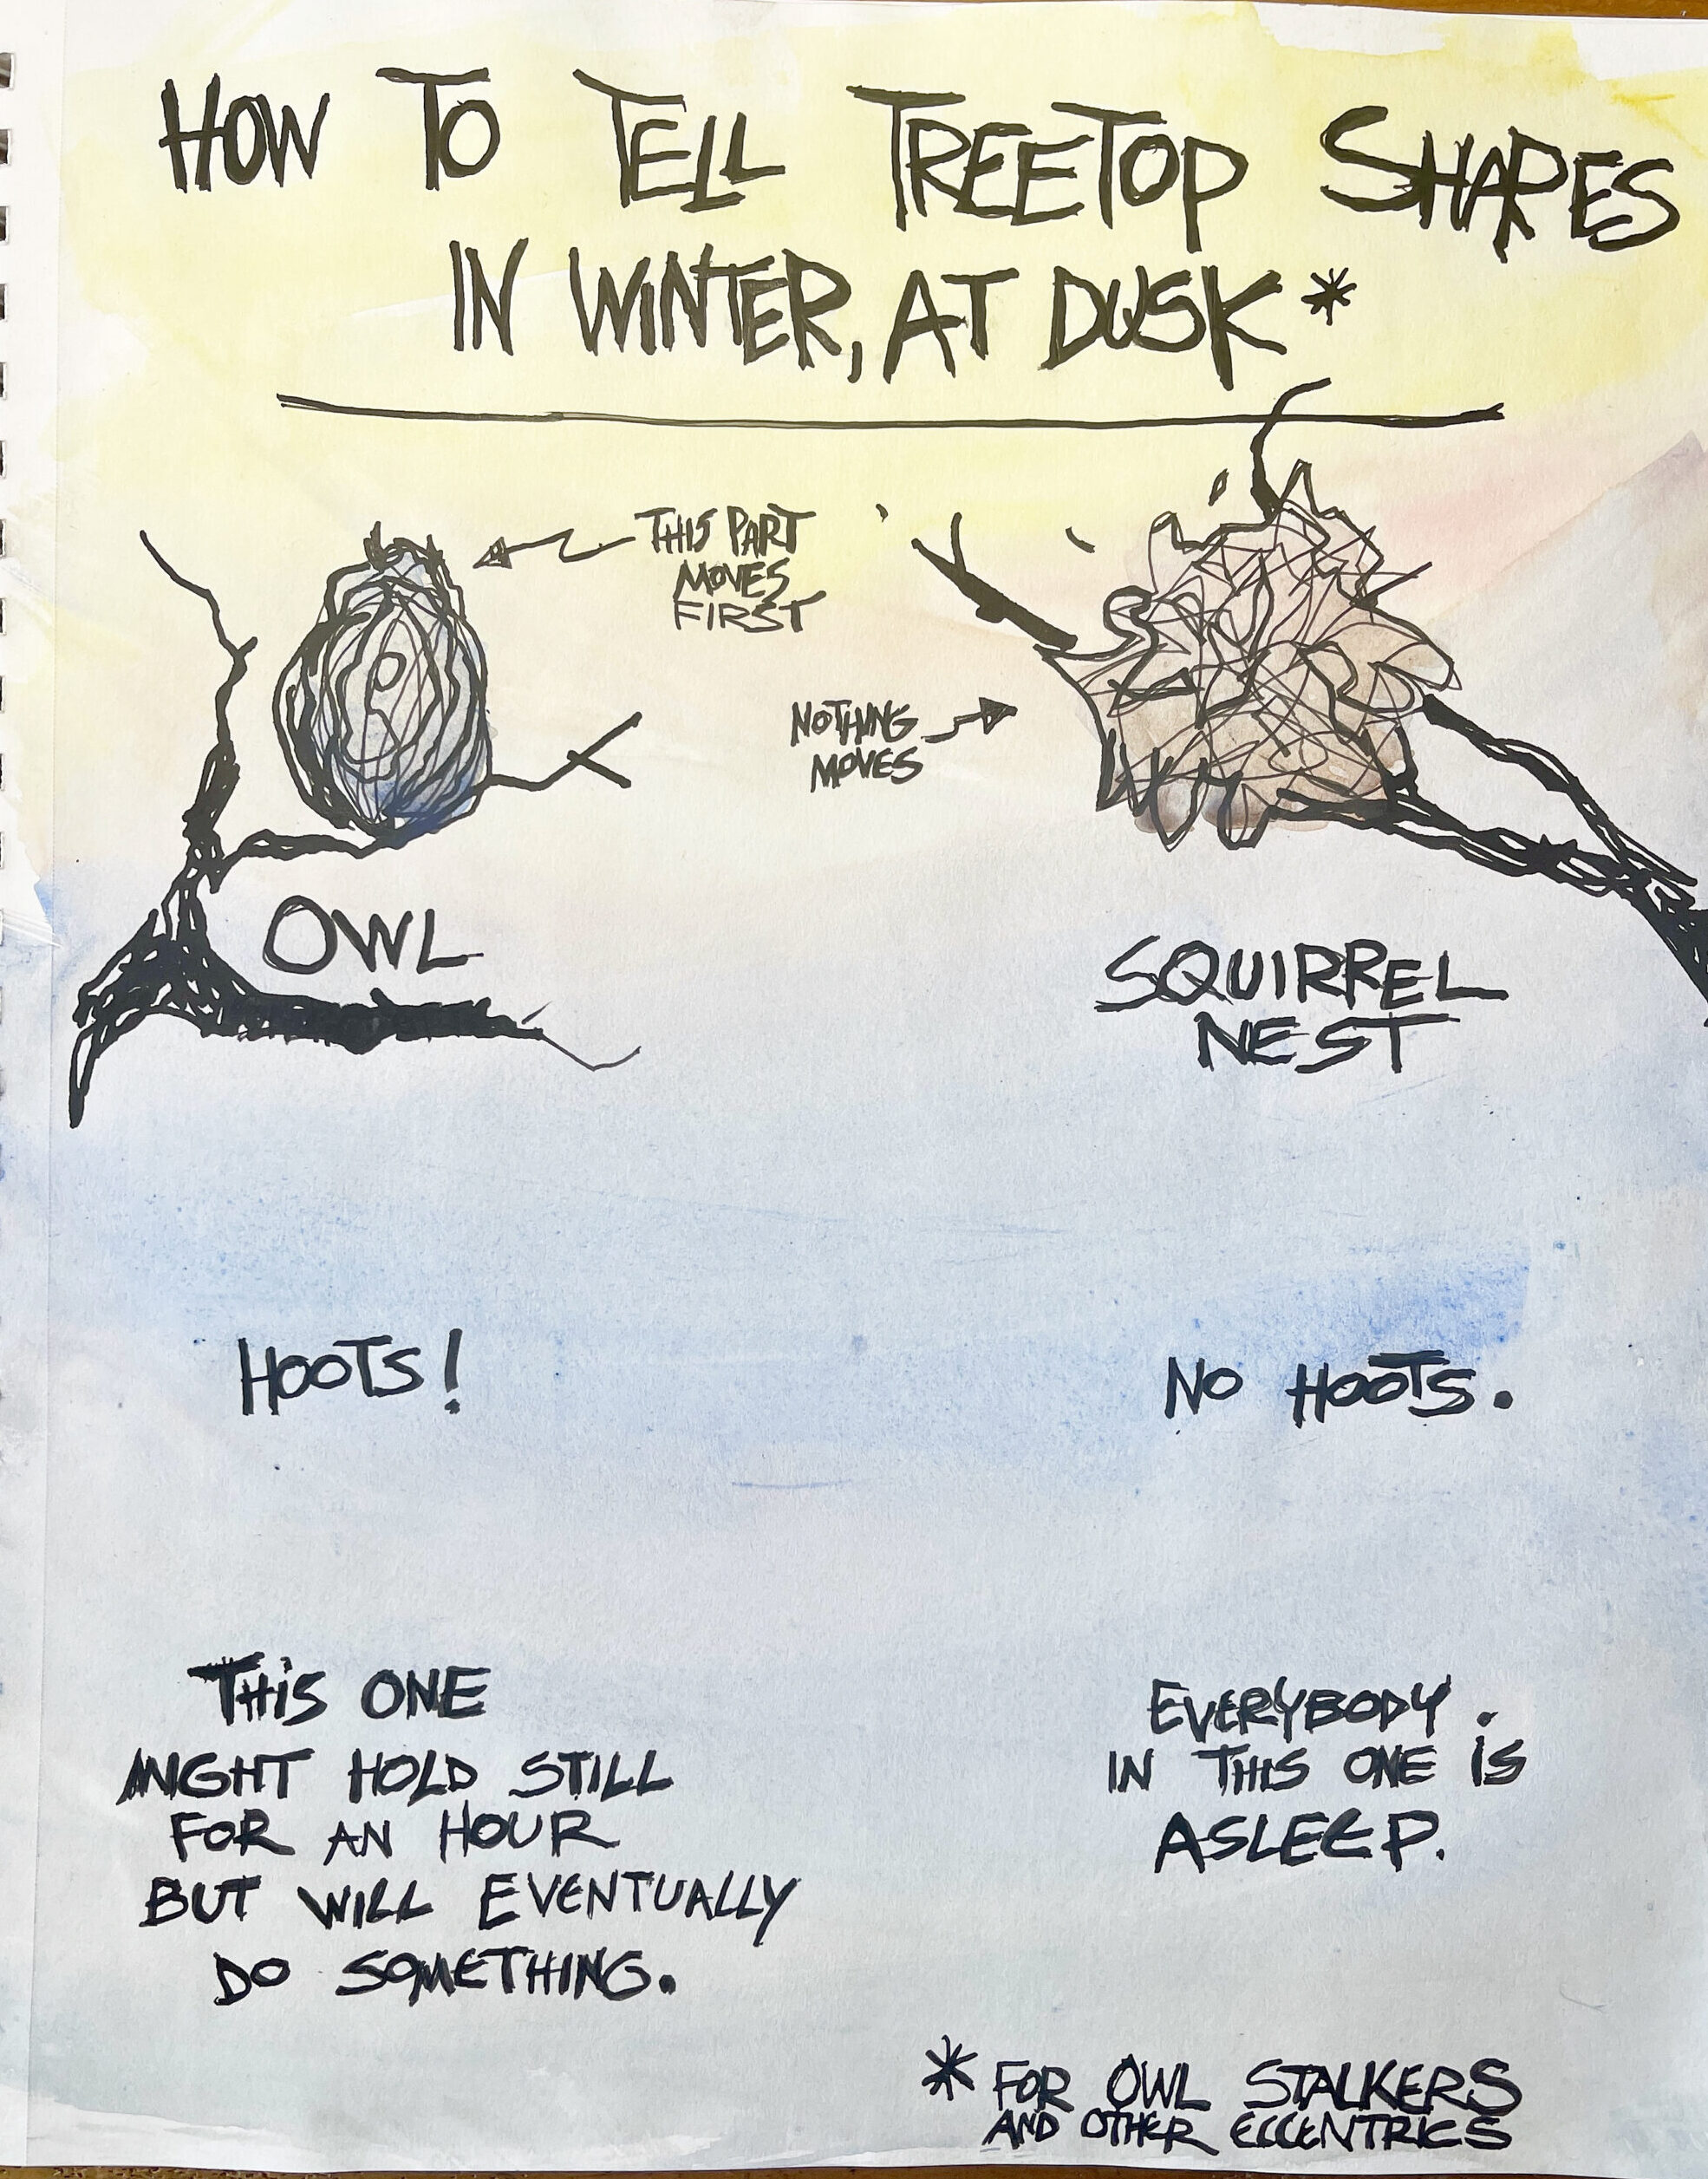 HOW TO TELL TREETOP SHAPES
IN WINTER, AT DUSK*
THIS PART
MOVES
FIRST
NOTHING
MOVES
OWL
SQUIRREL
NEST
HOOTS!
NO HOOTS.
THIS ONE
MIGHT HOLD STILL
FOR AN HOUR
BUT WILL EVENTUALLY
DO SOMETHING.
EVERYBODY
IN THIS ONE IS
ASLEEP.
* FOR OWL STALKERS
AND OTHER ECCENTRICS